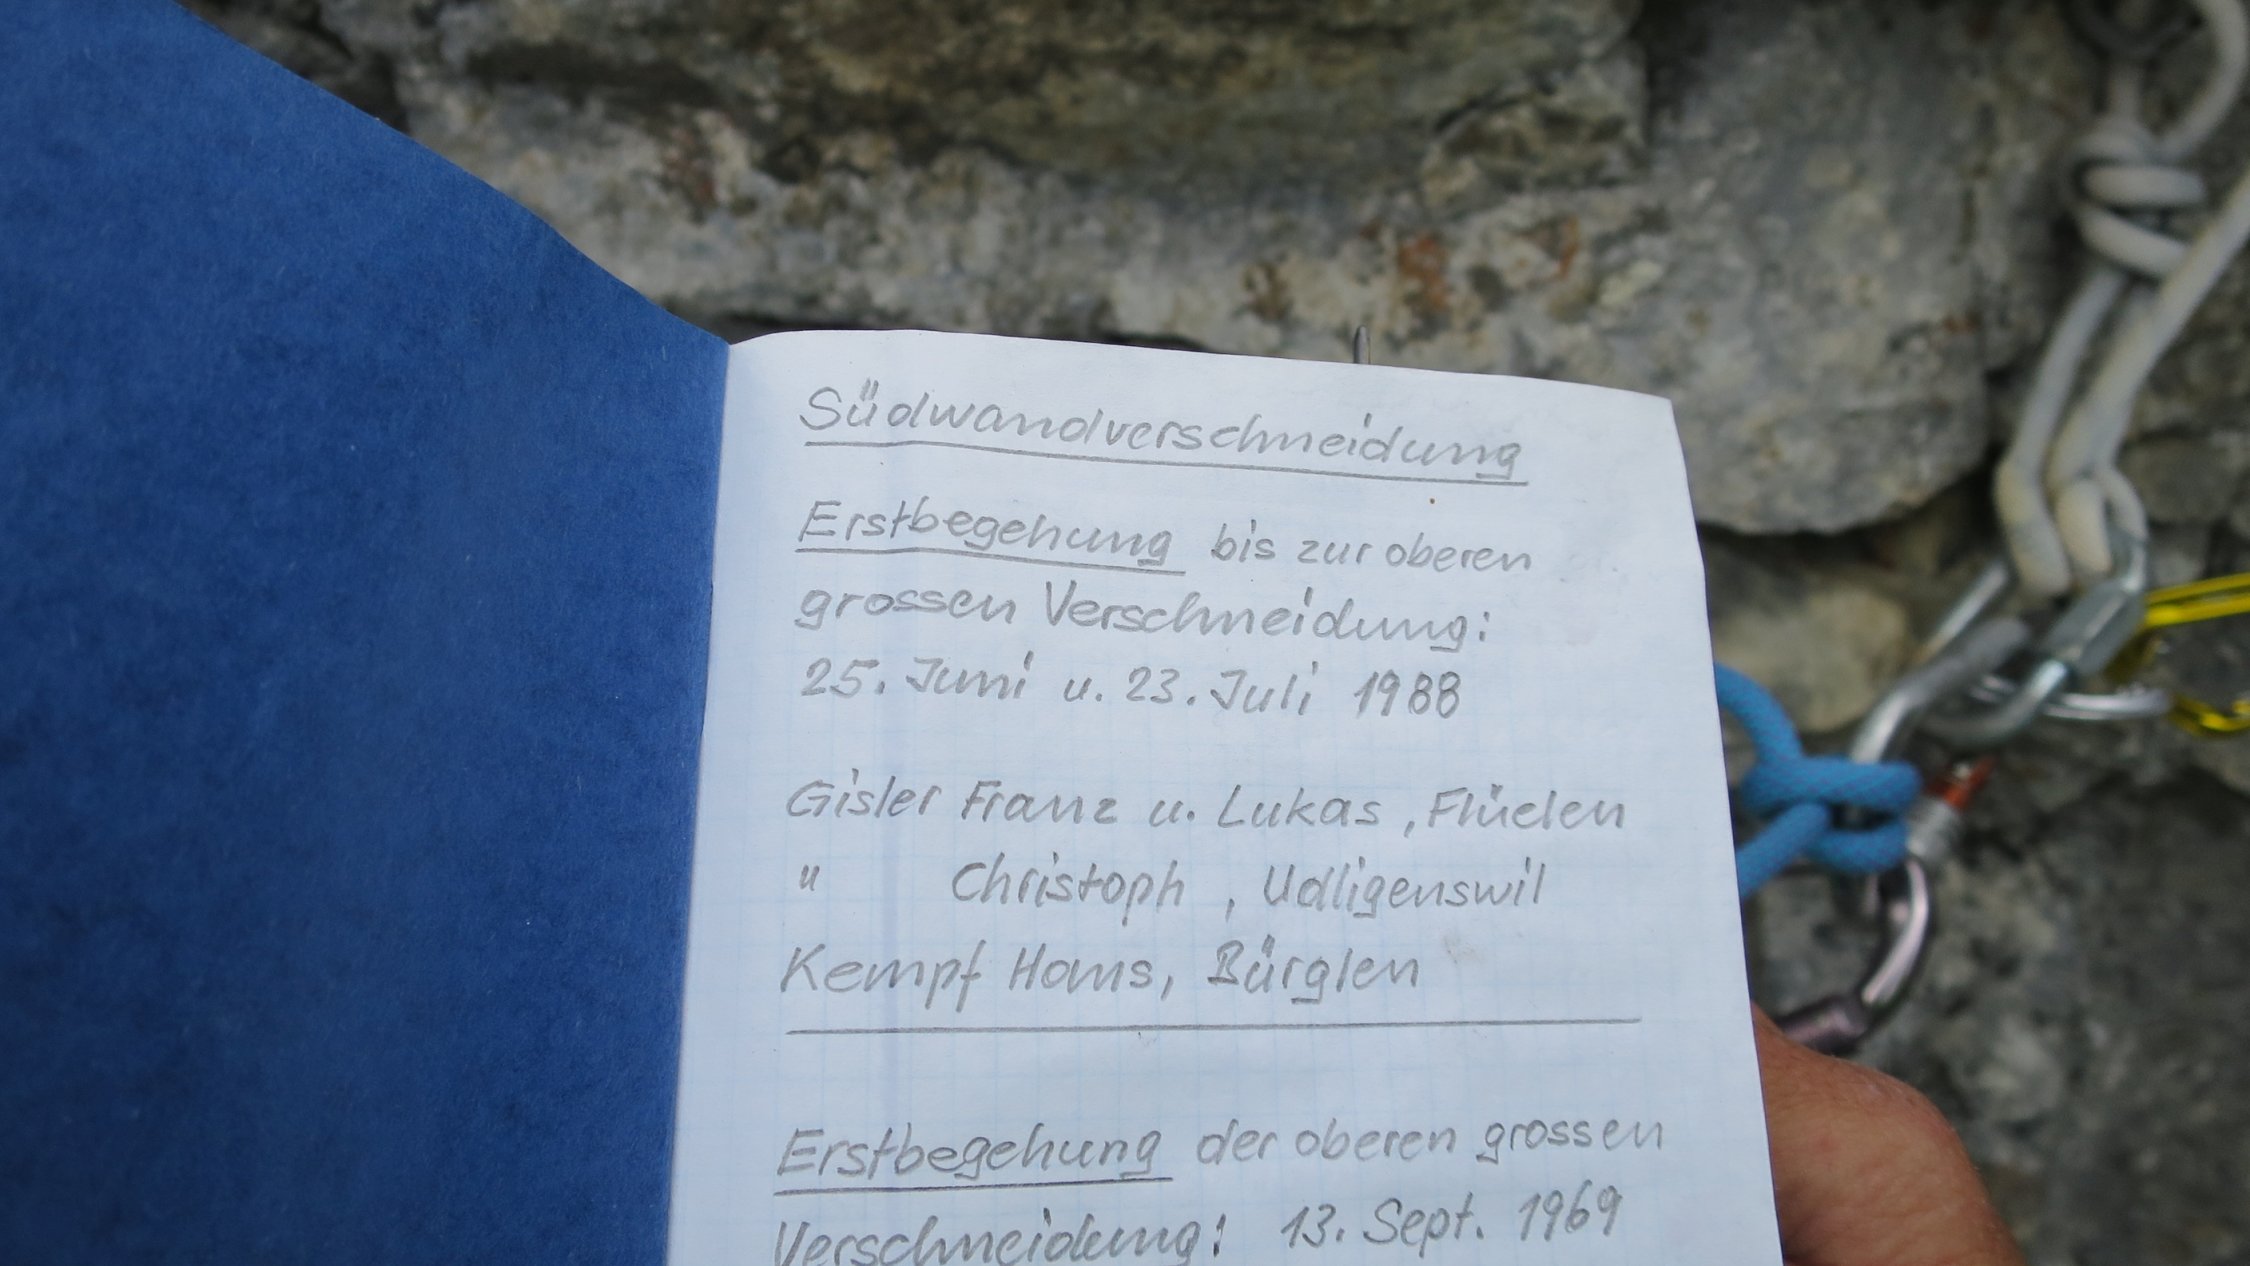 Südwandverschneidung
Erstbegehung bis zur oberen
grossen Verschneidung:
25. Juni u. 23. Juli 1988
Gisler Franz u. Lukas, Flüelen
" Christoph, Udligenswil
Kempf Hans, Bürglen
Erstbegehung der oberen grossen
Verschneidung: 13. Sept. 1969